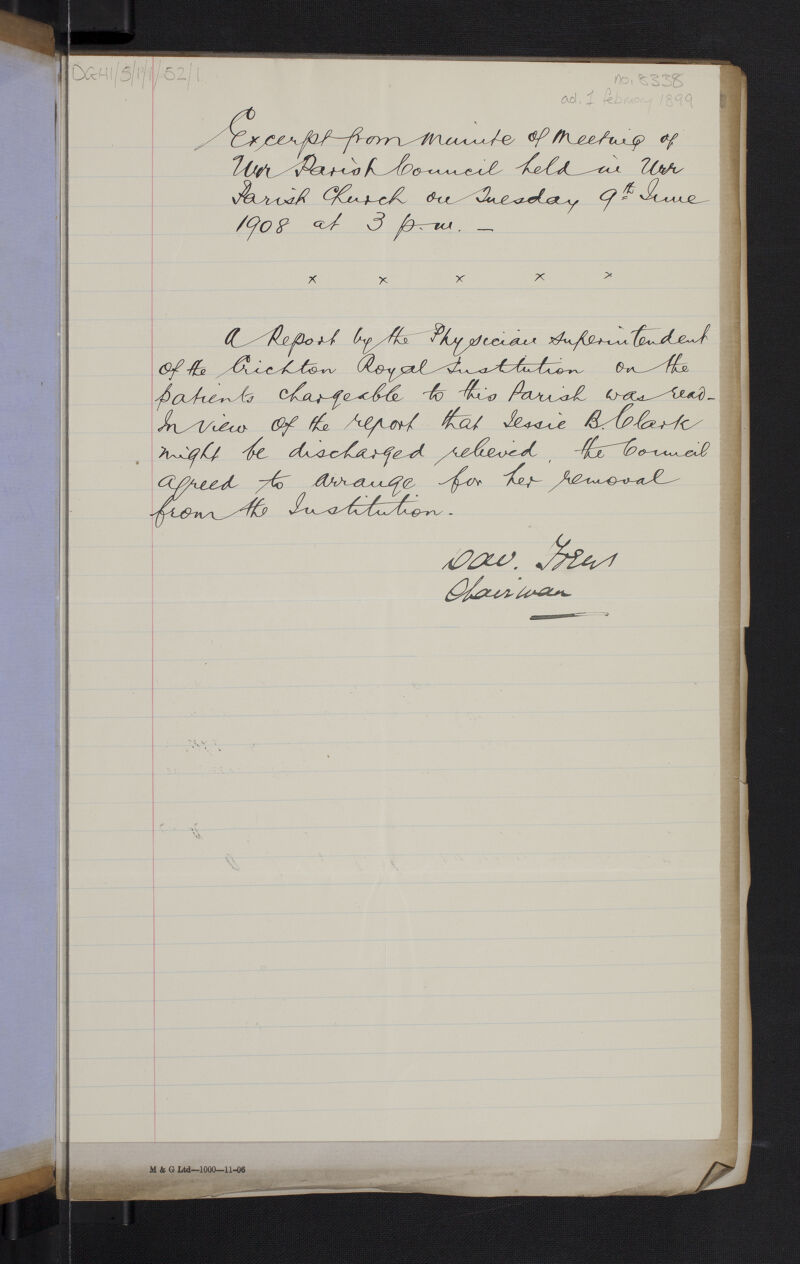 DGH1/5/1/1/52/1
no. 8338
ad. 1 february 1899
Excerpt from Minute of Meeting of
Urr Parish Council held in Urr
Parish Church on Tuesday 9th June
1908 at 3 p.m. —
x x x x x
A Report by the Physician Superintendent
of the Crichton Royal Institution on the
patients chargeable to this Parish was read–
In view of the report that Jessie B. Clark
might be discharged relieved, the Council
agreed to arrange for her removal
from the Institution.
Dav.
Chairman
M & G Ltd—1000—11-06